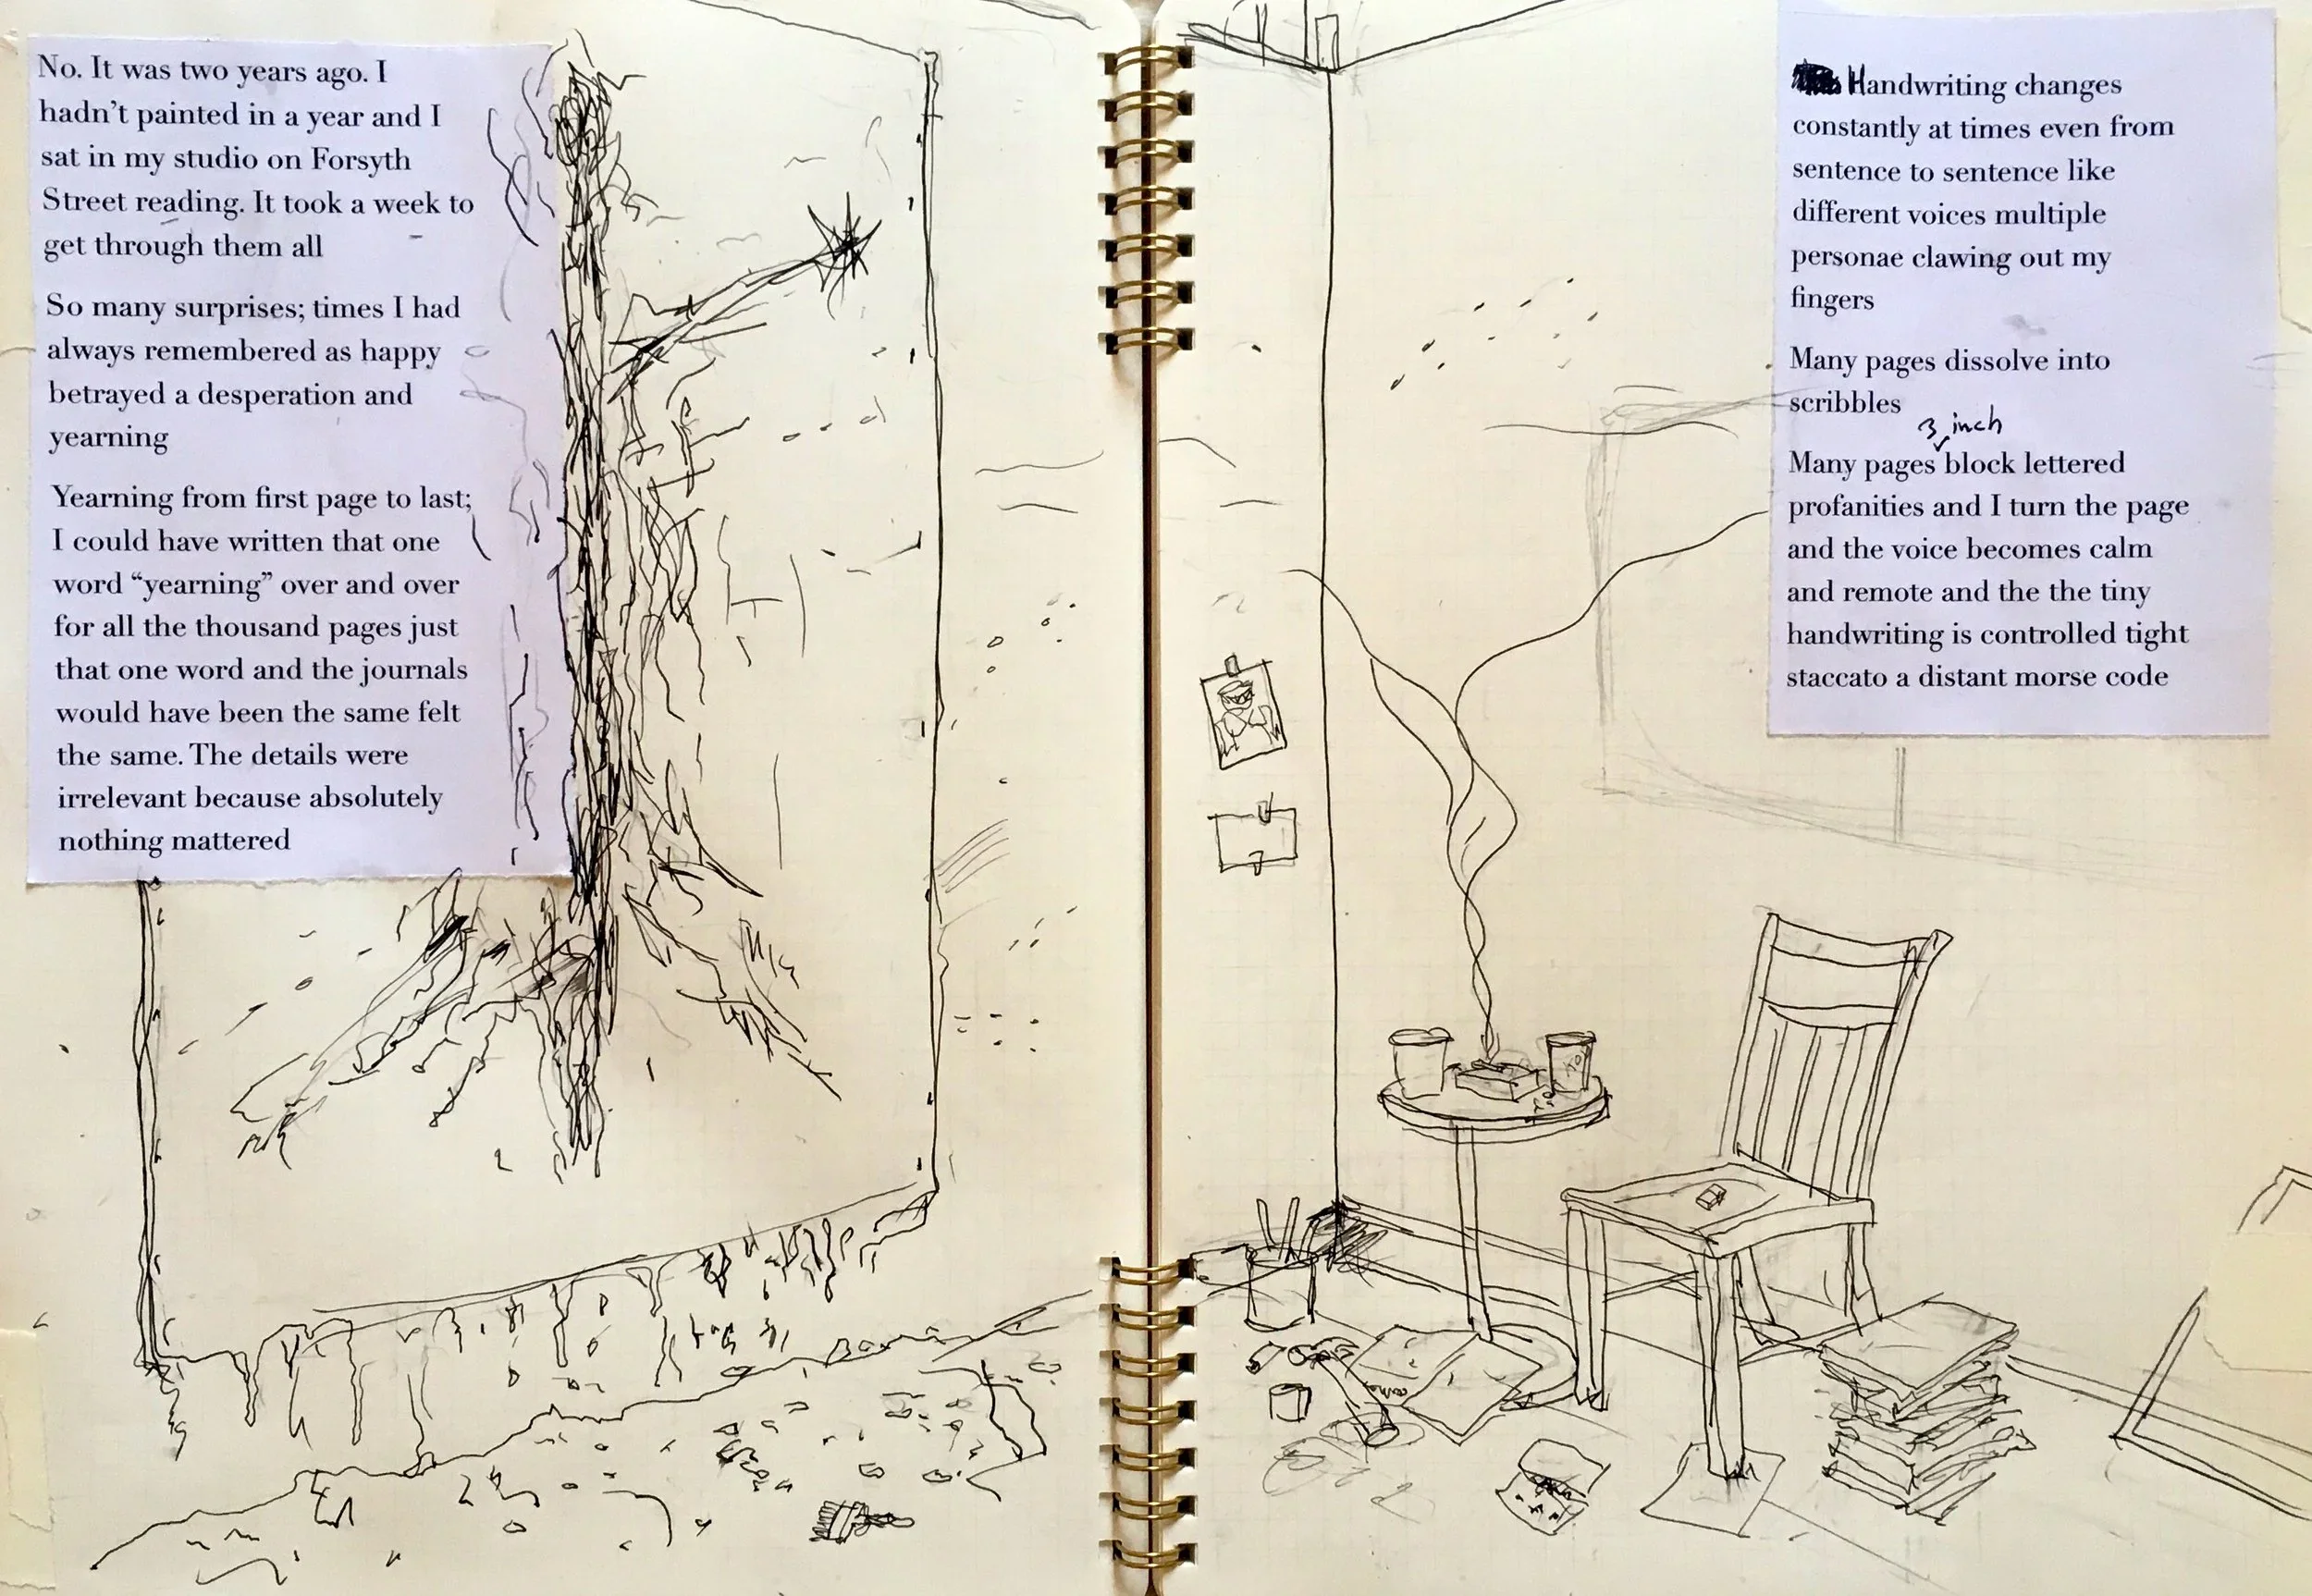 No. It was two years ago. I
hadn't painted in a year and I
sat in my studio on Forsyth
Street reading. It took a week to
get through them all
So many surprises; times I had
always remembered as happy
betrayed a desperation and
yearning
Yearning from first page to last;
I could have written that one
word “yearning” over and over
for all the thousand pages just
that one word and the journals
would have been the same felt
the same. The details were
irrelevant because absolutely
nothing mattered
Handwriting changes
constantly at times even from
sentence to sentence like
different voices multiple
personae clawing out my
fingers
Many pages dissolve into
scribbles
3 inch
Many pages block lettered
profanities and I turn the page
and the voice becomes calm
and remote and the the tiny
handwriting is controlled tight
staccato a distant morse code